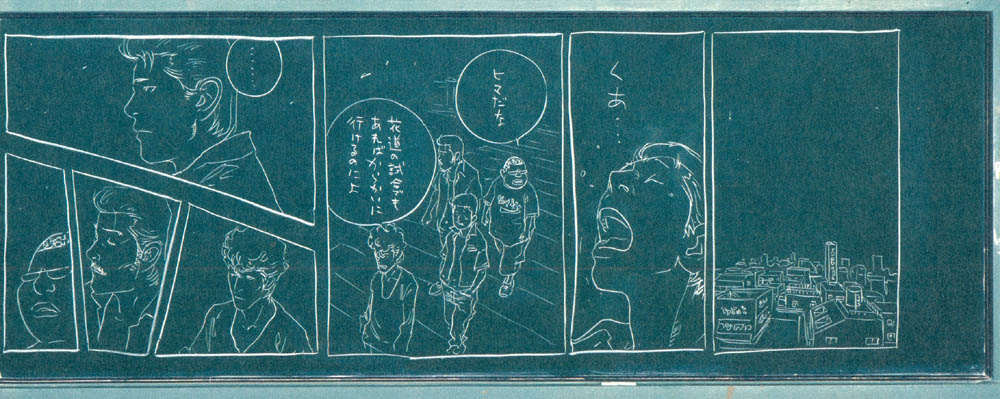 くあ…
ヒマだな
花道の試合でも
あればからかいに
行けるのによ
……